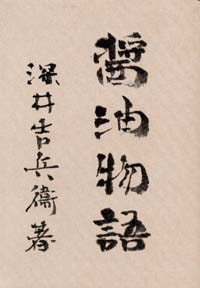 醤油物語
深井吉兵衞著